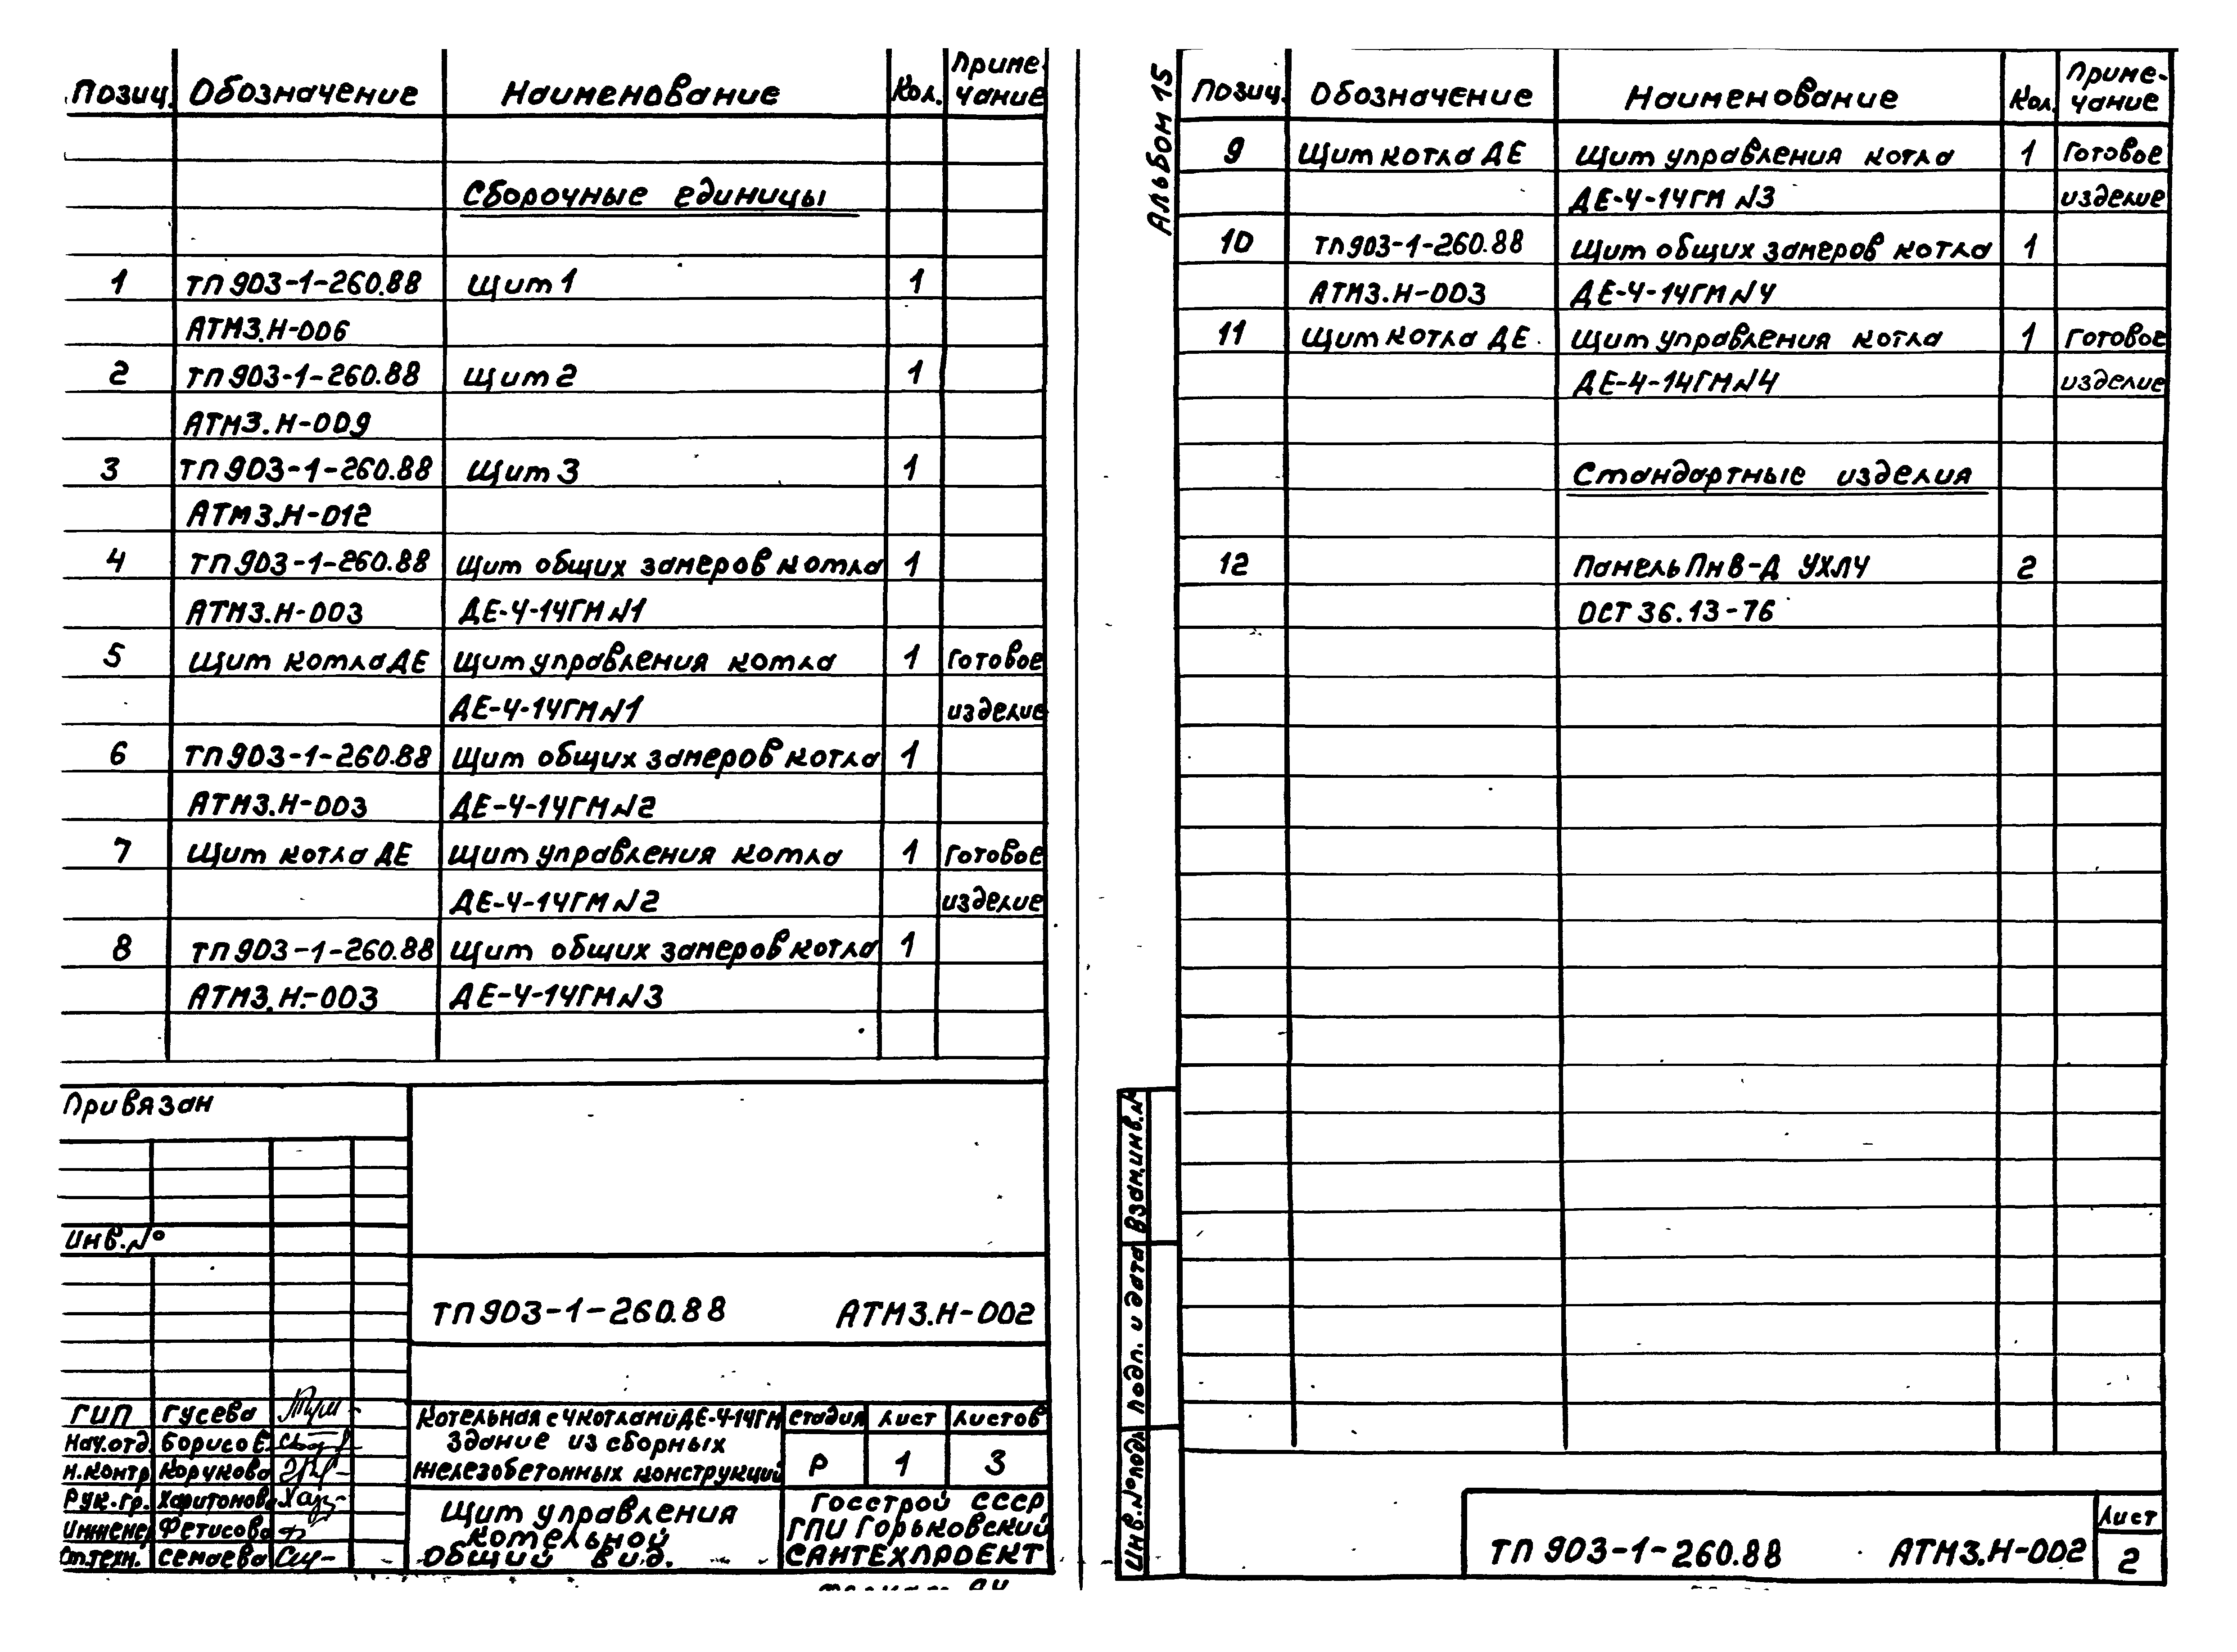 Позиц. Обозначение Наименование Кол. Примечание
Сборочные единицы
1 ТП 903-1-260.88 Щит 1 1
АТМ3.Н-006
2 ТП 903-1-260.88 Щит 2 1
АТМ3.Н-009
3 ТП 903-1-260.88 Щит 3 1
АТМ3.Н-012
4 ТП 903-1-260.88 Щит общих замеров котла 1
АТМ3.Н-003 ДЕ-4-14ГМ N1
5 Щит котла ДЕ Щит управления котла 1 Готовое
ДЕ-4-14ГМ N1 изделие
6 ТП 903-1-260.88 Щит общих замеров котла 1
АТМ3.Н-003 ДЕ-4-14ГМ N2
7 Щит котла ДЕ Щит управления котла 1 Готовое
ДЕ-4-14ГМ N2 изделие
8 ТП 903-1-260.88 Щит общих замеров котла 1
АТМ3.Н-003 ДЕ-4-14ГМ N3
Привязан
Инв.N°
ТП 903-1-260.88 АТМ3.Н-002
ГИП Гусева
Нач.отд. Борисов Е.
Н.контр. Корукова
Рук.гр. Харитонова
Инженер Фетисова
Ст.техн. Семаева
Котельная с 4 котлами ДЕ-4-14ГМ
Здание из сборных
железобетонных конструкций
Стадия Лист Листов
Р 1 3
Щит управления
котельной
Общий вид.
Госстрой СССР
ГПИ Горьковский
САНТЕХПРОЕКТ
Альбом 15
Позиц. Обозначение Наименование Кол. Примечание
9 Щит котла ДЕ Щит управления котла 1 Готовое
ДЕ-4-14ГМ N3 изделие
10 ТП 903-1-260.88 Щит общих замеров котла 1
АТМ3.Н-003 ДЕ-4-14ГМ N4
11 Щит котла ДЕ Щит управления котла 1 Готовое
ДЕ-4-14ГМ N4 изделие
Стандартные изделия
12 Панель ПнВ-Д УХЛ4 2
ОСТ 36.13-76
Взам.инв.N
Подп. и дата
Инв.N°подл
ТП 903-1-260.88 АТМ3.Н-002
Лист
2